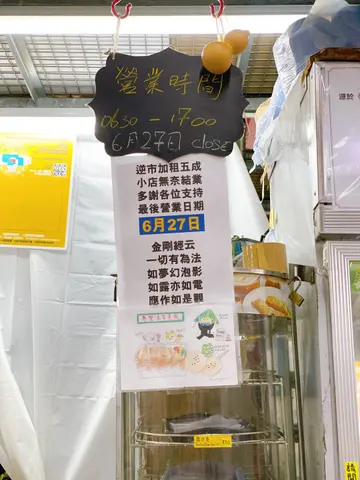 營業時間
0630 - 1700
6月27日 close
逆市加租五成
小店無奈結業
多謝各位支持
最後營業日期
6月27日
金剛經云
一切有為法
如夢幻泡影
如露亦如電
應作如是觀